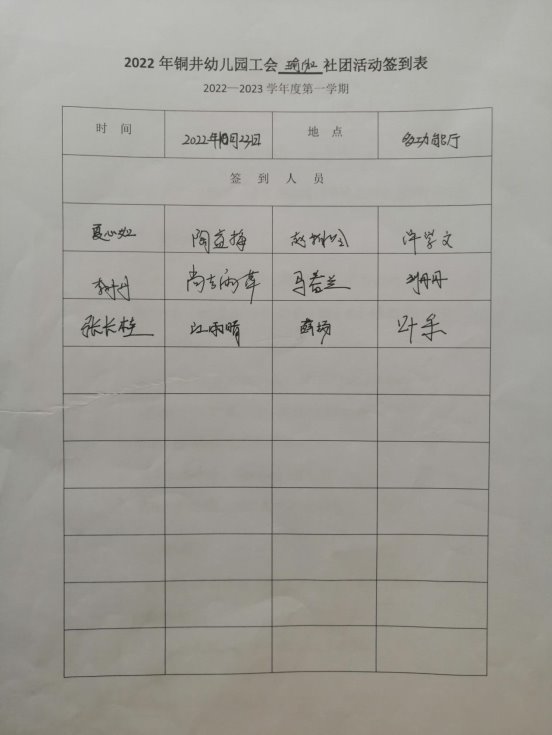 2022年铜井幼儿园工会 瑜伽 社团活动签到表
2022—2023学年度第一学期
时 间 2022年10月23日 地 点 多功能厅
签 到 人 员
夏心虹 陶益梅 许学文
李丹丹 马春兰 刘丹丹
张长桂 江雨晴 薛杨 叶禾